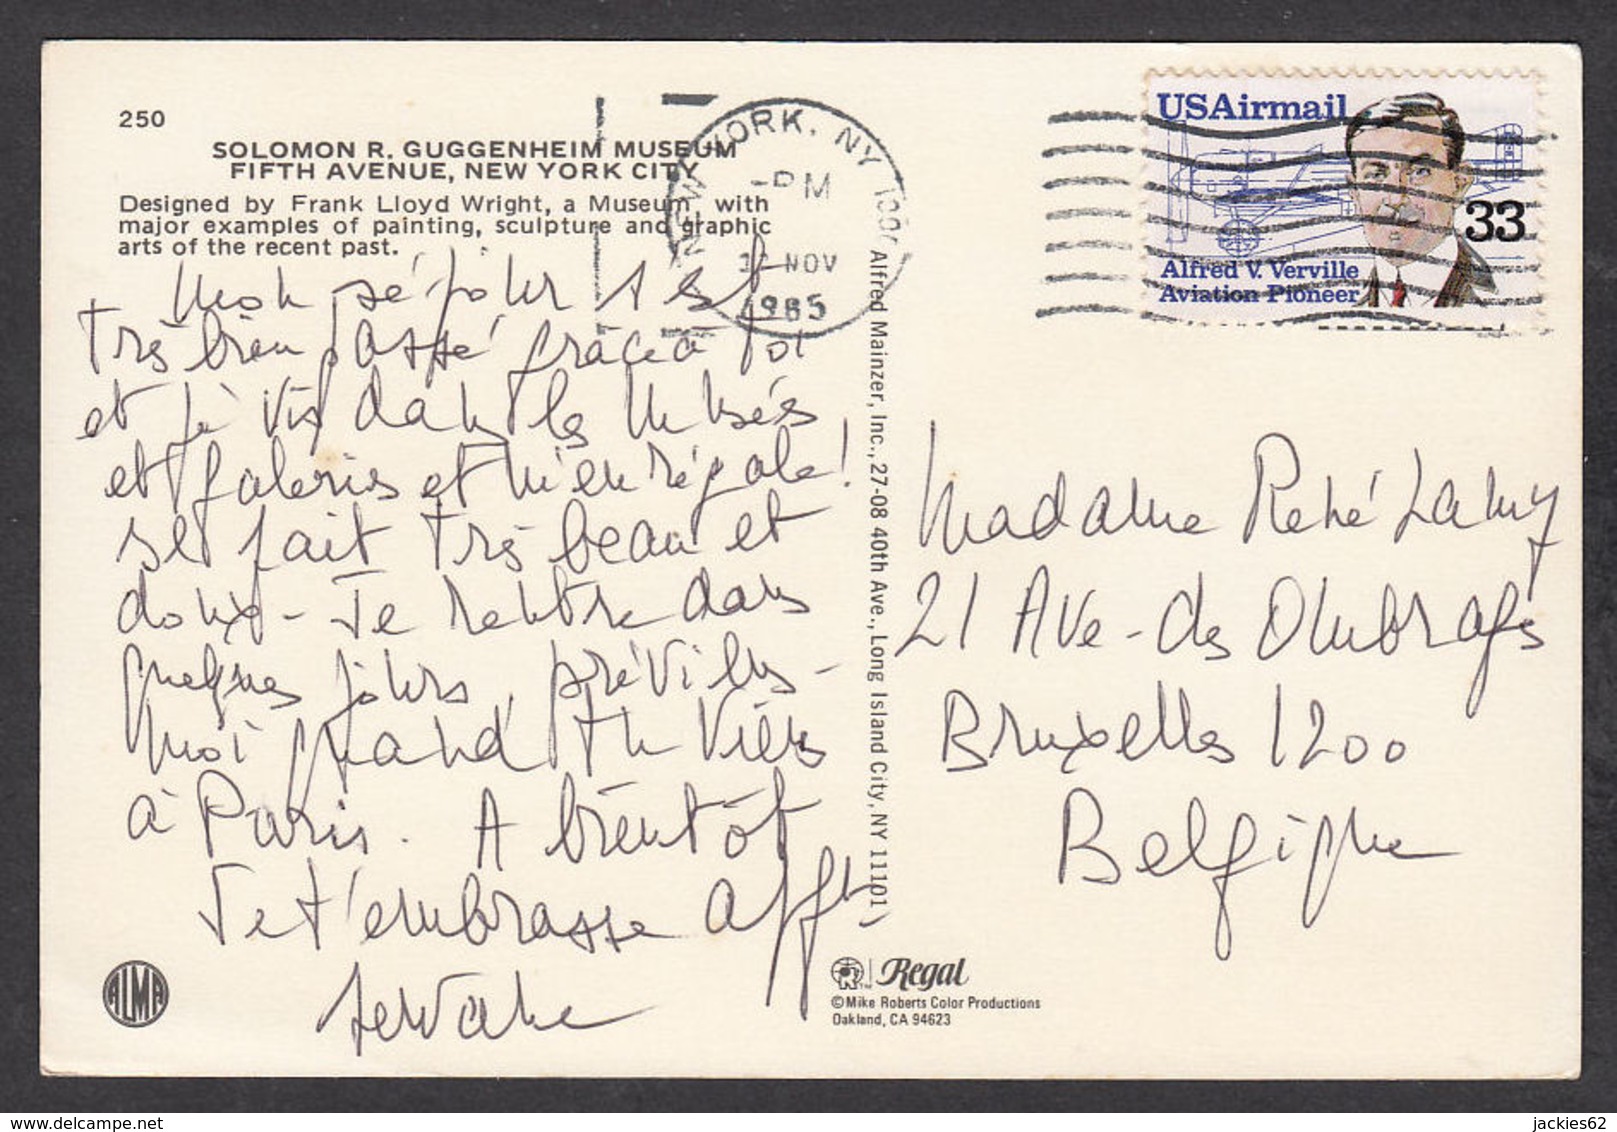 250
SOLOMON R. GUGGENHEIM MUSEUM
FIFTH AVENUE, NEW YORK CITY
Designed by Frank Lloyd Wright, a Museum with
major examples of painting, sculpture and graphic
arts of the recent past.
Mon séjour s'est
très bien passé grâce à toi
et je vis dans les Musées
et galeries et m'en régale!
Il fait très beau et
doux - Je rentre dans
quelques jours, préviens-
moi quand tu viens
à Paris. A bientôt
Je t'embrasse afft
NEW YORK, NY 100
PM
NOV
1985
USAirmail
33
Alfred V. Verville
Aviation Pioneer
Alfred Mainzer, Inc., 27-08 40th Ave., Long Island City, NY 11101
Madame René Lamy
21 Ave - des Ombrages
Bruxelles 1200
Belgique
ALMA
Regal
©Mike Roberts Color Productions
Oakland, CA 94623
jackies62